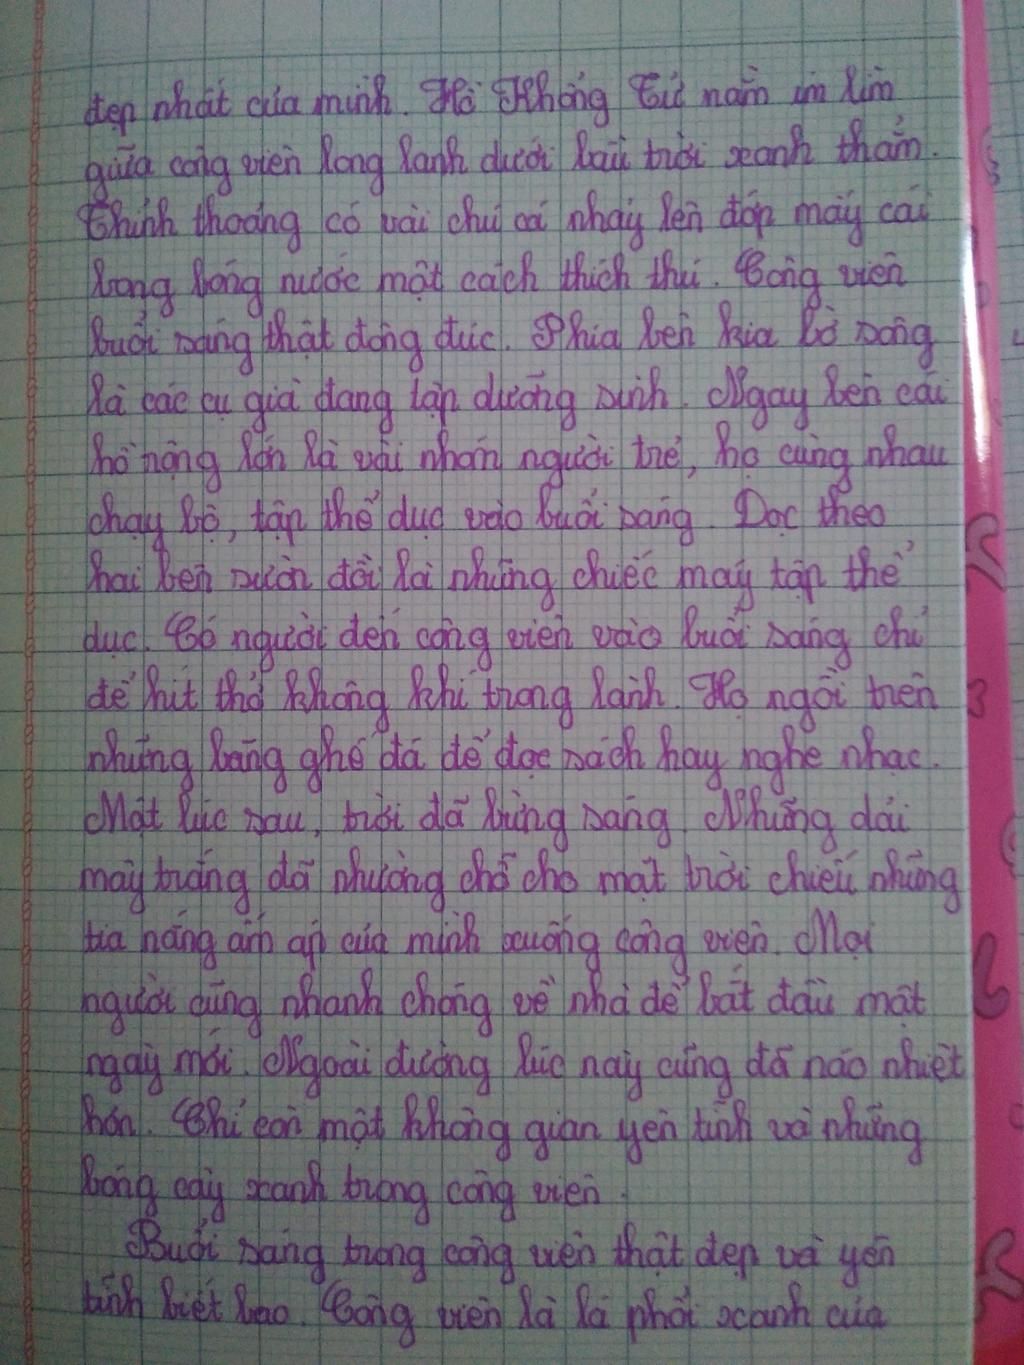 đẹp nhất của mình. Hồ Khổng Tử nằm im lìm
giữa công viên long lanh dưới bầu trời xanh thẳm.
Thỉnh thoảng có vài chú cá nhảy lên đớp mấy cái
bong bóng nước một cách thích thú. Công viên
buổi sáng thật đông đúc. Phía bên kia bờ sông
là các cụ già đang tập dưỡng sinh. Ngay bên cái
hồ rộng lớn là vài nhóm người trẻ, họ cùng nhau
chạy bộ, tập thể dục vào buổi sáng. Dọc theo
hai bên sườn đồi là những chiếc máy tập thể
dục. Có người đến công viên vào buổi sáng chỉ
để hít thở không khí trong lành. Họ ngồi trên
những băng ghế đá để đọc sách hay nghe nhạc.
Một lúc sau, trời đã bừng sáng. Những dải
mây trắng đã nhường chỗ cho mặt trời chiếu những
tia nắng ấm áp của mình xuống công viên. Mọi
người cũng nhanh chóng về nhà để bắt đầu một
ngày mới. Ngoài đường lúc này cũng đã náo nhiệt
hơn. Chỉ còn một không gian yên tĩnh và những
bóng cây xanh trong công viên.
Buổi sáng trong công viên thật đẹp và yên
tĩnh biết bao. Công viên là lá phổi xanh của